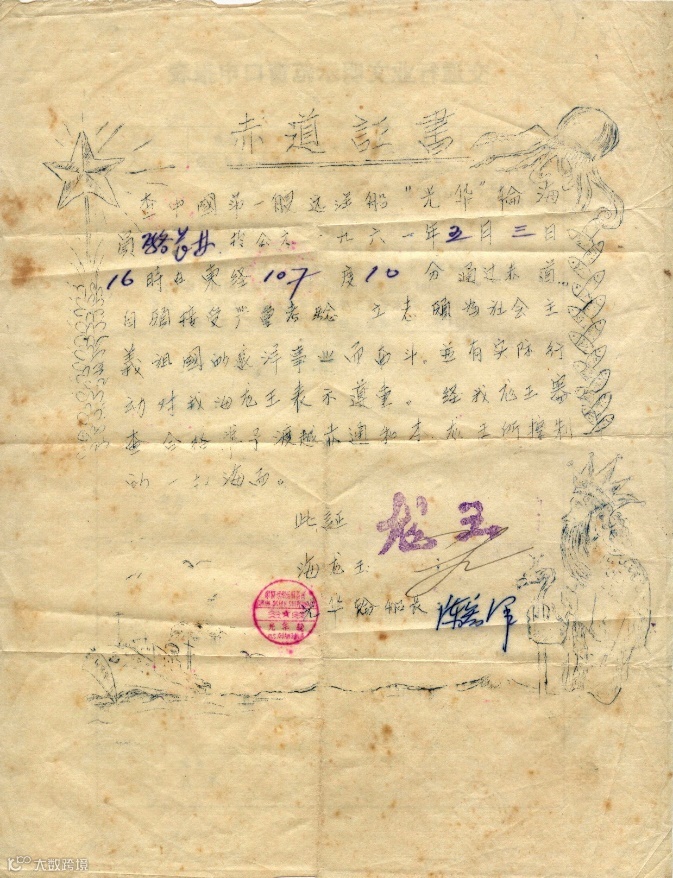 赤道証書
查中國第一艘远洋船"光华"輪海
員 於公元一九六一年五月三日
16時在東経107度10分通过赤道
自願接受严重考驗 立志願为社会主
義祖國的远洋事业而奋斗,並有实际行
动对我海龙王表示遵重。経我龙王審
查合格准予渡越赤道和本龙王所控制
的一切海面。
此証
龙王
海龙王
光华輪船長 陈宏泽
大数跨境